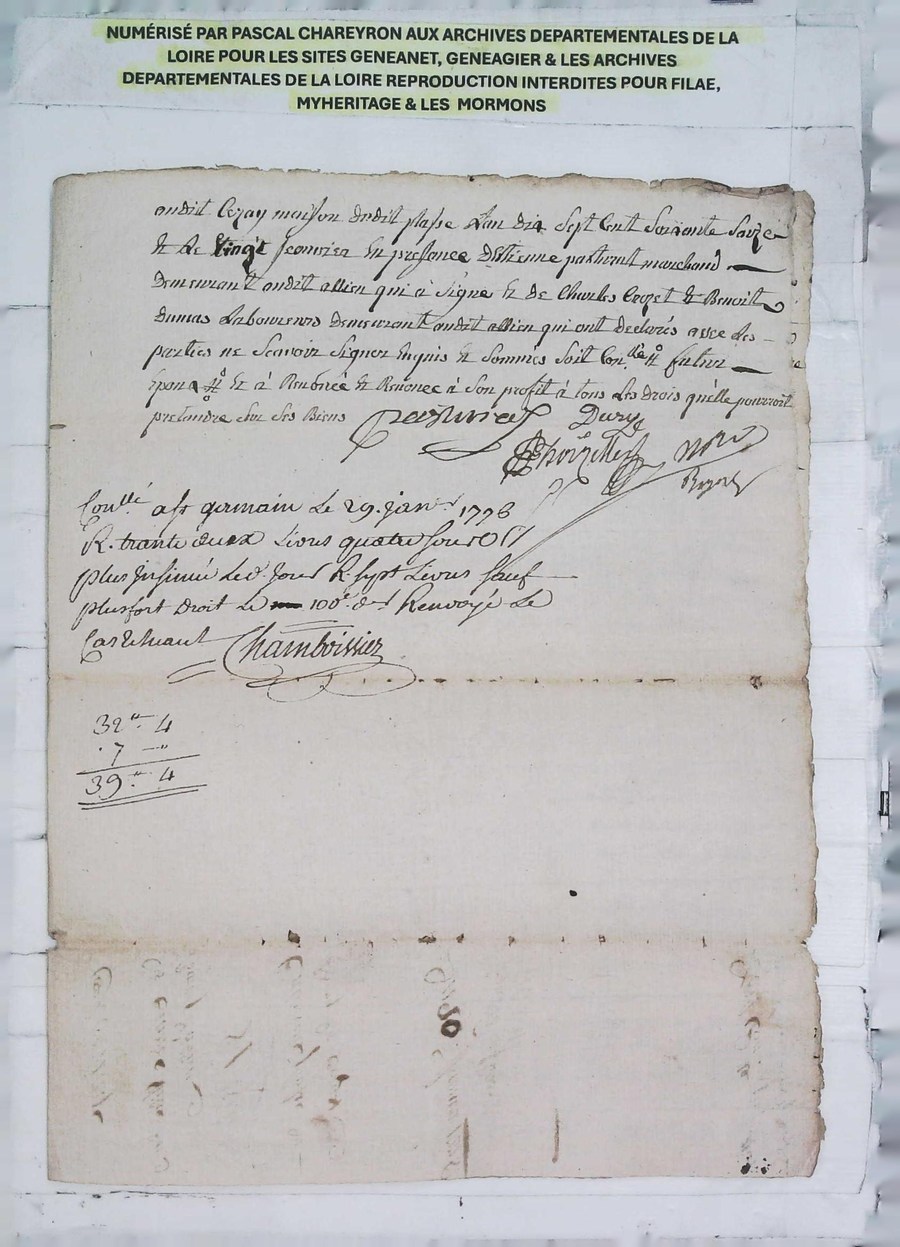 NUMÉRISÉ PAR PASCAL CHAREYRON AUX ARCHIVES DEPARTEMENTALES DE LA
LOIRE POUR LES SITES GENEANET, GENEAGIER & LES ARCHIVES
DEPARTEMENTALES DE LA LOIRE REPRODUCTION INTERDITES POUR FILAE,
MYHERITAGE & LES MORMONS
audit Cezay maison dudit plasse L'an dix sept cent soixante saize
& le vingt jeanvier En presance d'Etienne pasturat marchand
Demeurant audit allieu qui à signé Et de Charles Crozet & Benoit
Dumas Laboureurs demeurant audit allieu qui ont declarés avec les
parties ne scavoir signer Enquis & sommés soit
Et à Renoncé à son profit à tous les Drois qu'elle pourroit
pretendre sur ses Biens
pasturat Dury
Roger
Conllé a st germain Le 29. janr 1776
R. trante deux Livres quatre sous
plus insinué led. jour R. sept Livres sauf
plus fort Droit Le 100e. d. Renvoyé Le
Chamboissier
32 4
7
39 4